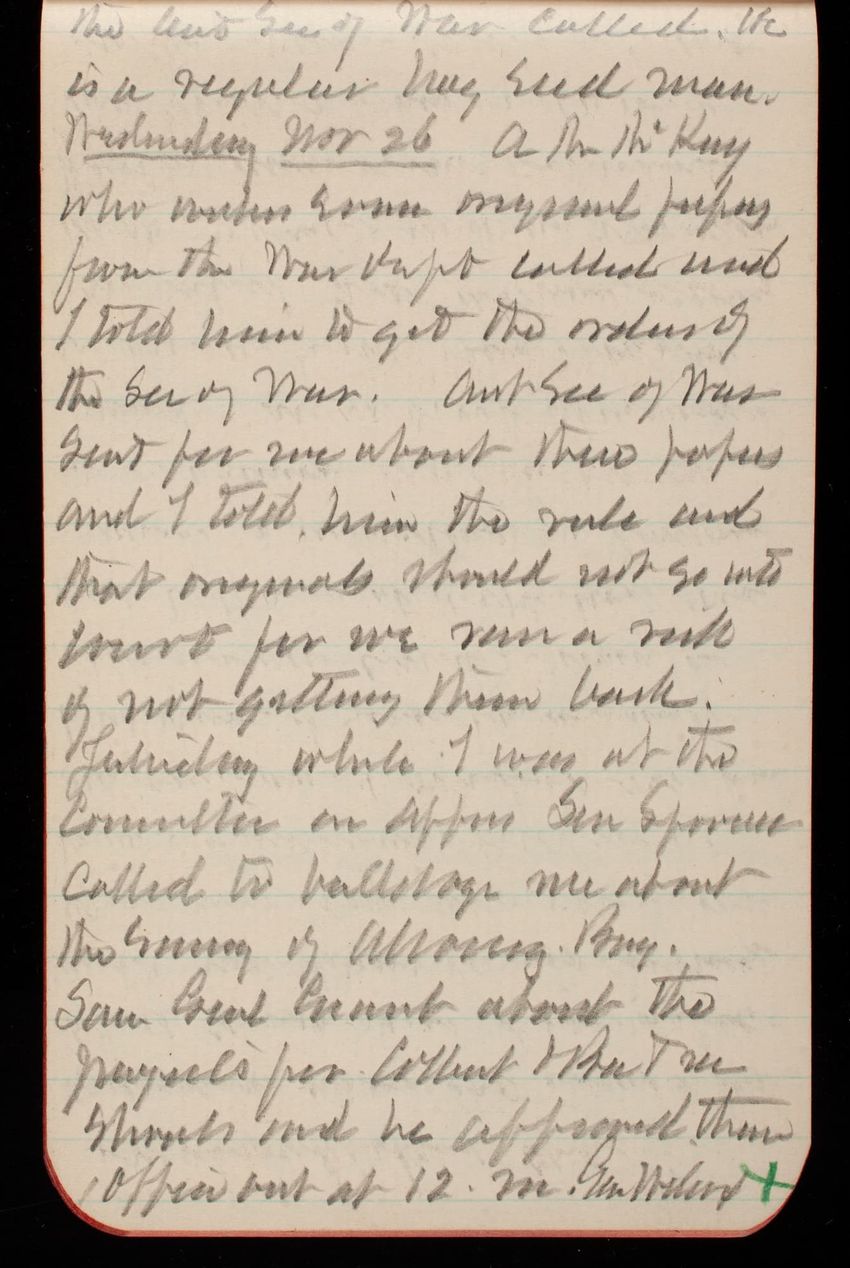 the Asst Sec of War called. He
is a regular hay seed man.
Wednesday Nov 26 A Mr McKay
who wishes some original papers
from the War Dept called and
I told him to get the orders of
the Sec of War. Asst Sec of War
Sent for me about these papers
and I told him the rule and
that originals should not go into
court for we run a risk
of not getting them back.
Yesterday while I was at the
Committee on Apprs Gen
Called to bulldoze me about
the Survey of Bay.
Saw Genl Grant about the
projects for Colbert & Bee Tree
Shoals and he approved them
Office out at 12. m. Gen Wilcox